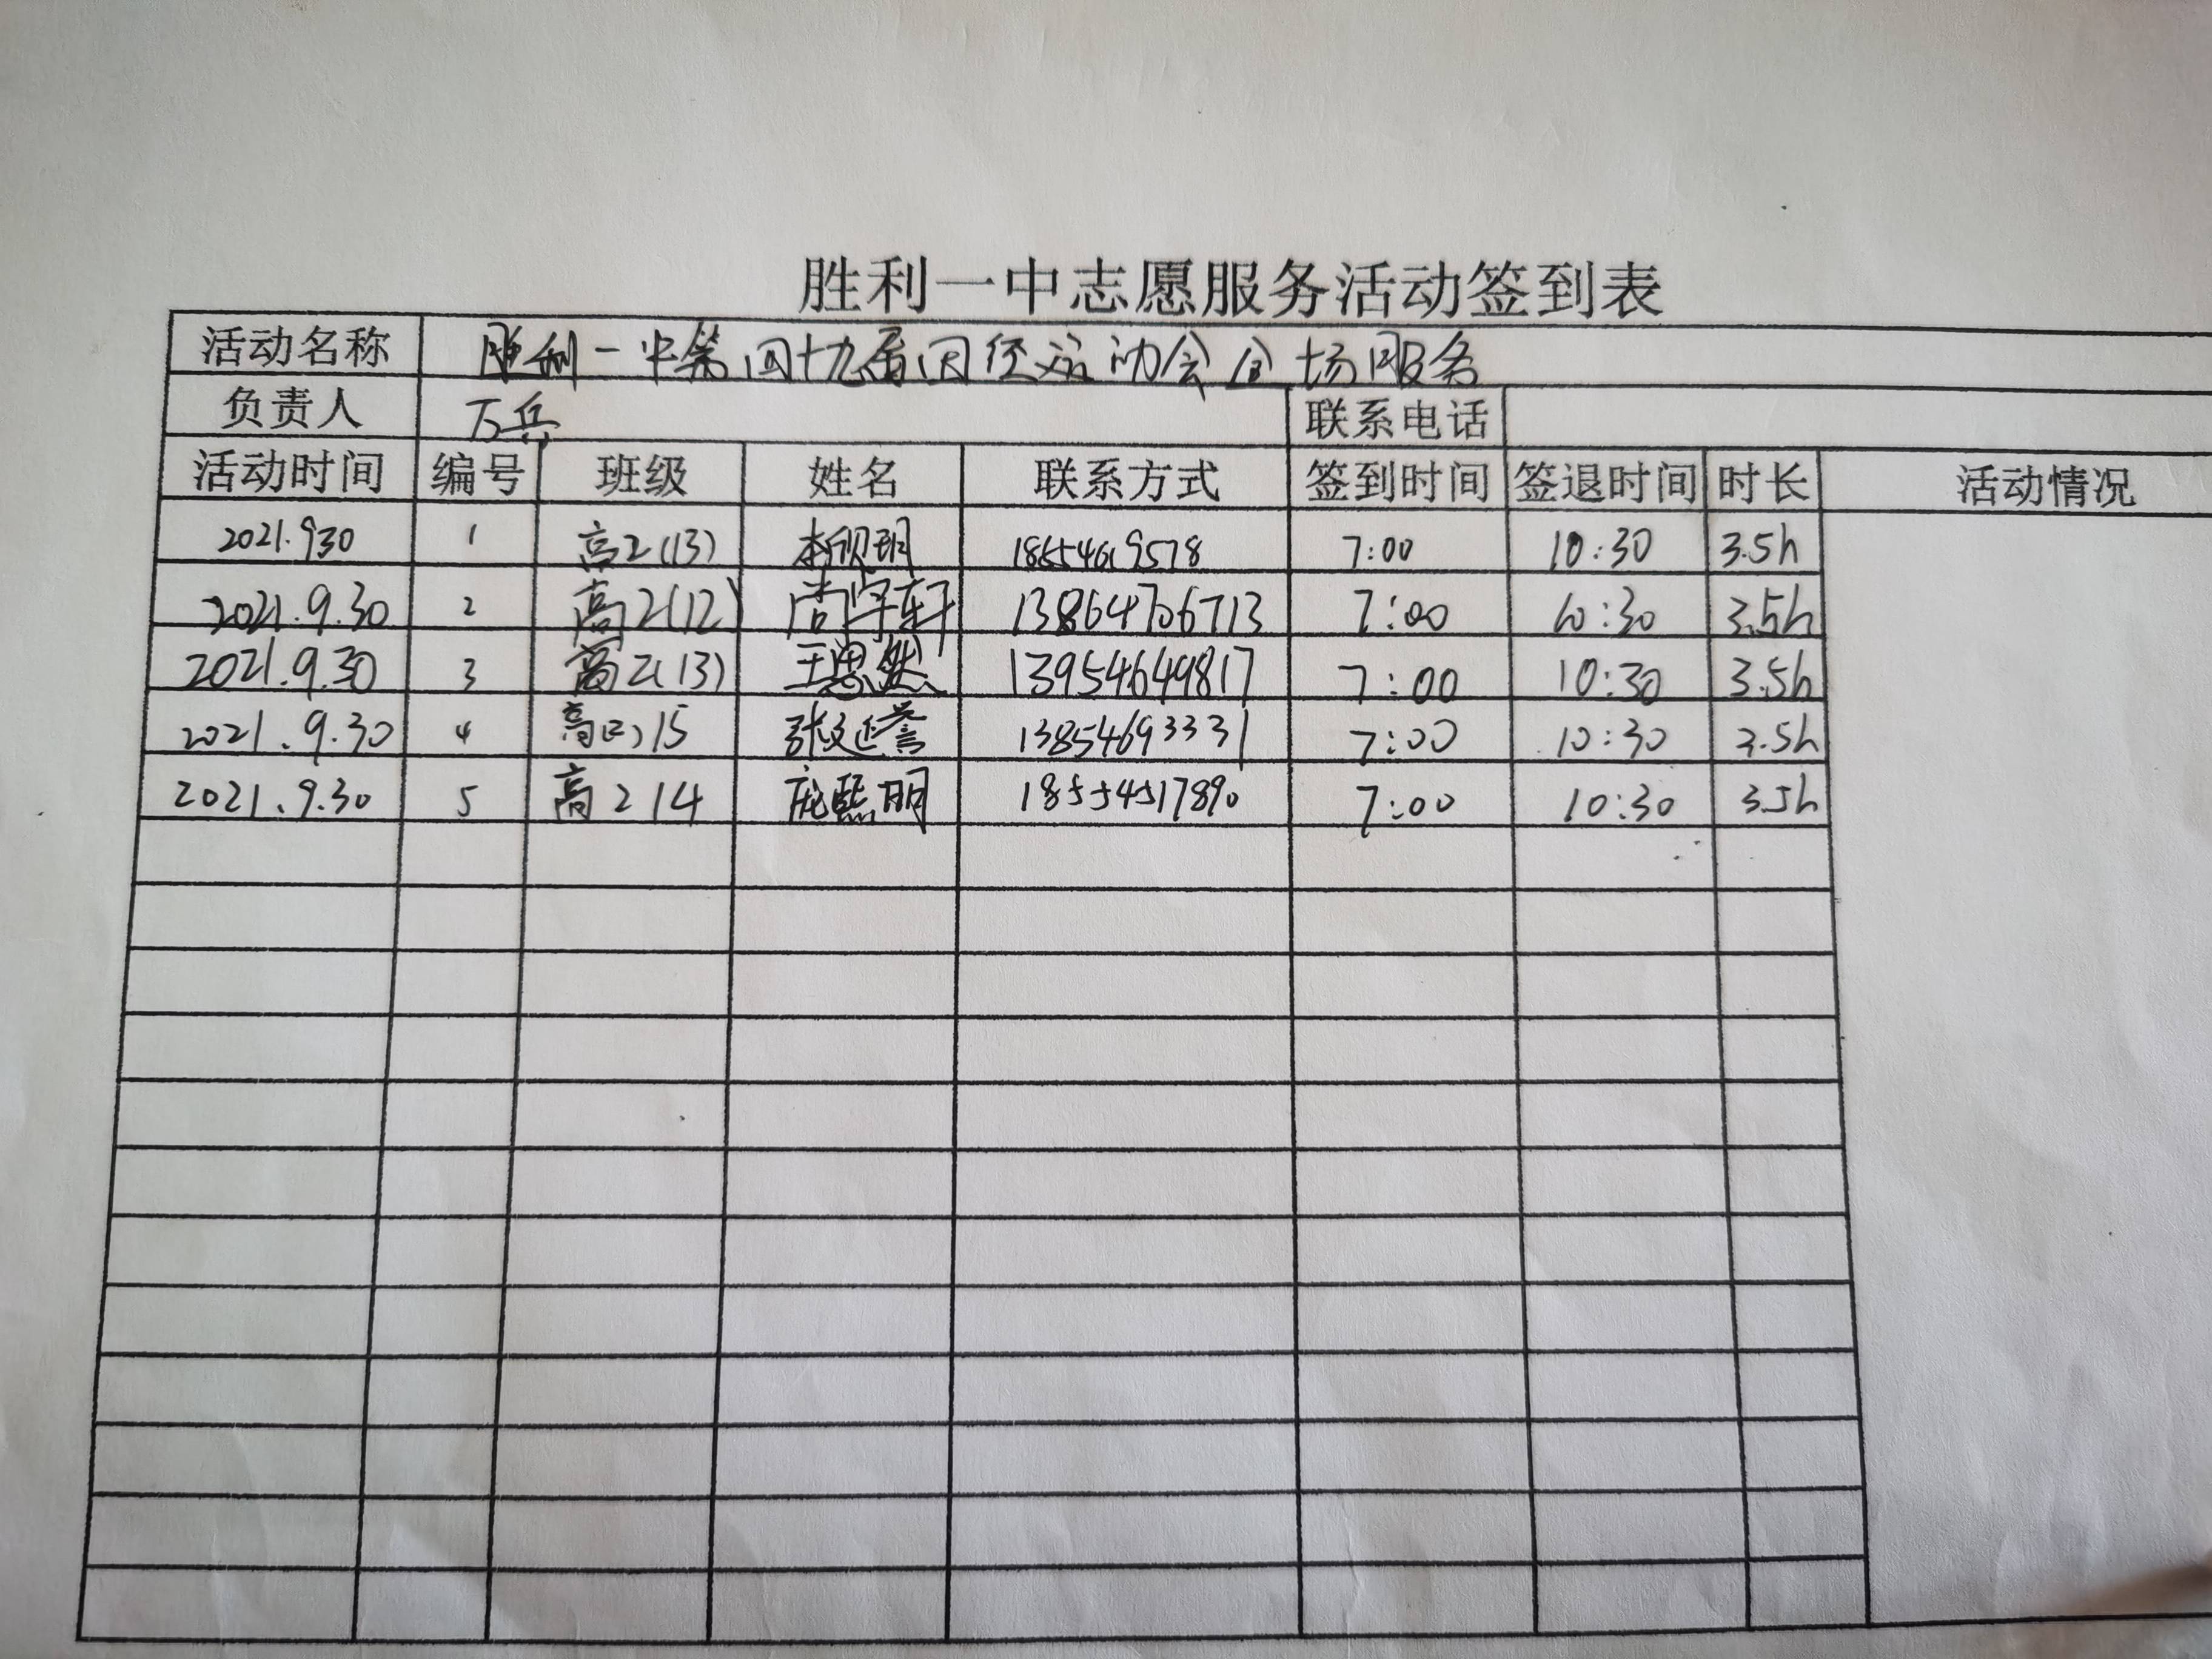 胜利一中志愿服务活动签到表
活动名称 胜利一中第四十九届田径运动会会场服务
负责人 万兵 联系电话
活动时间 编号 班级 姓名 联系方式 签到时间 签退时间 时长 活动情况
2021.930 1 高2(13) 李欣玥 18654619578 7:00 10:30 3.5h
2021.9.30 2 高2(12) 尚宇轩 13864706713 7:00 10:30 3.5h
2021.9.30 3 高2(13) 王思然 13954649817 7:00 10:30 3.5h
2021.9.30 4 15 张延誉 13854693331 7:00 10:30 3.5h
2021.9.30 5 高214 庞熙明 18554517890 7:00 10:30 3.5h